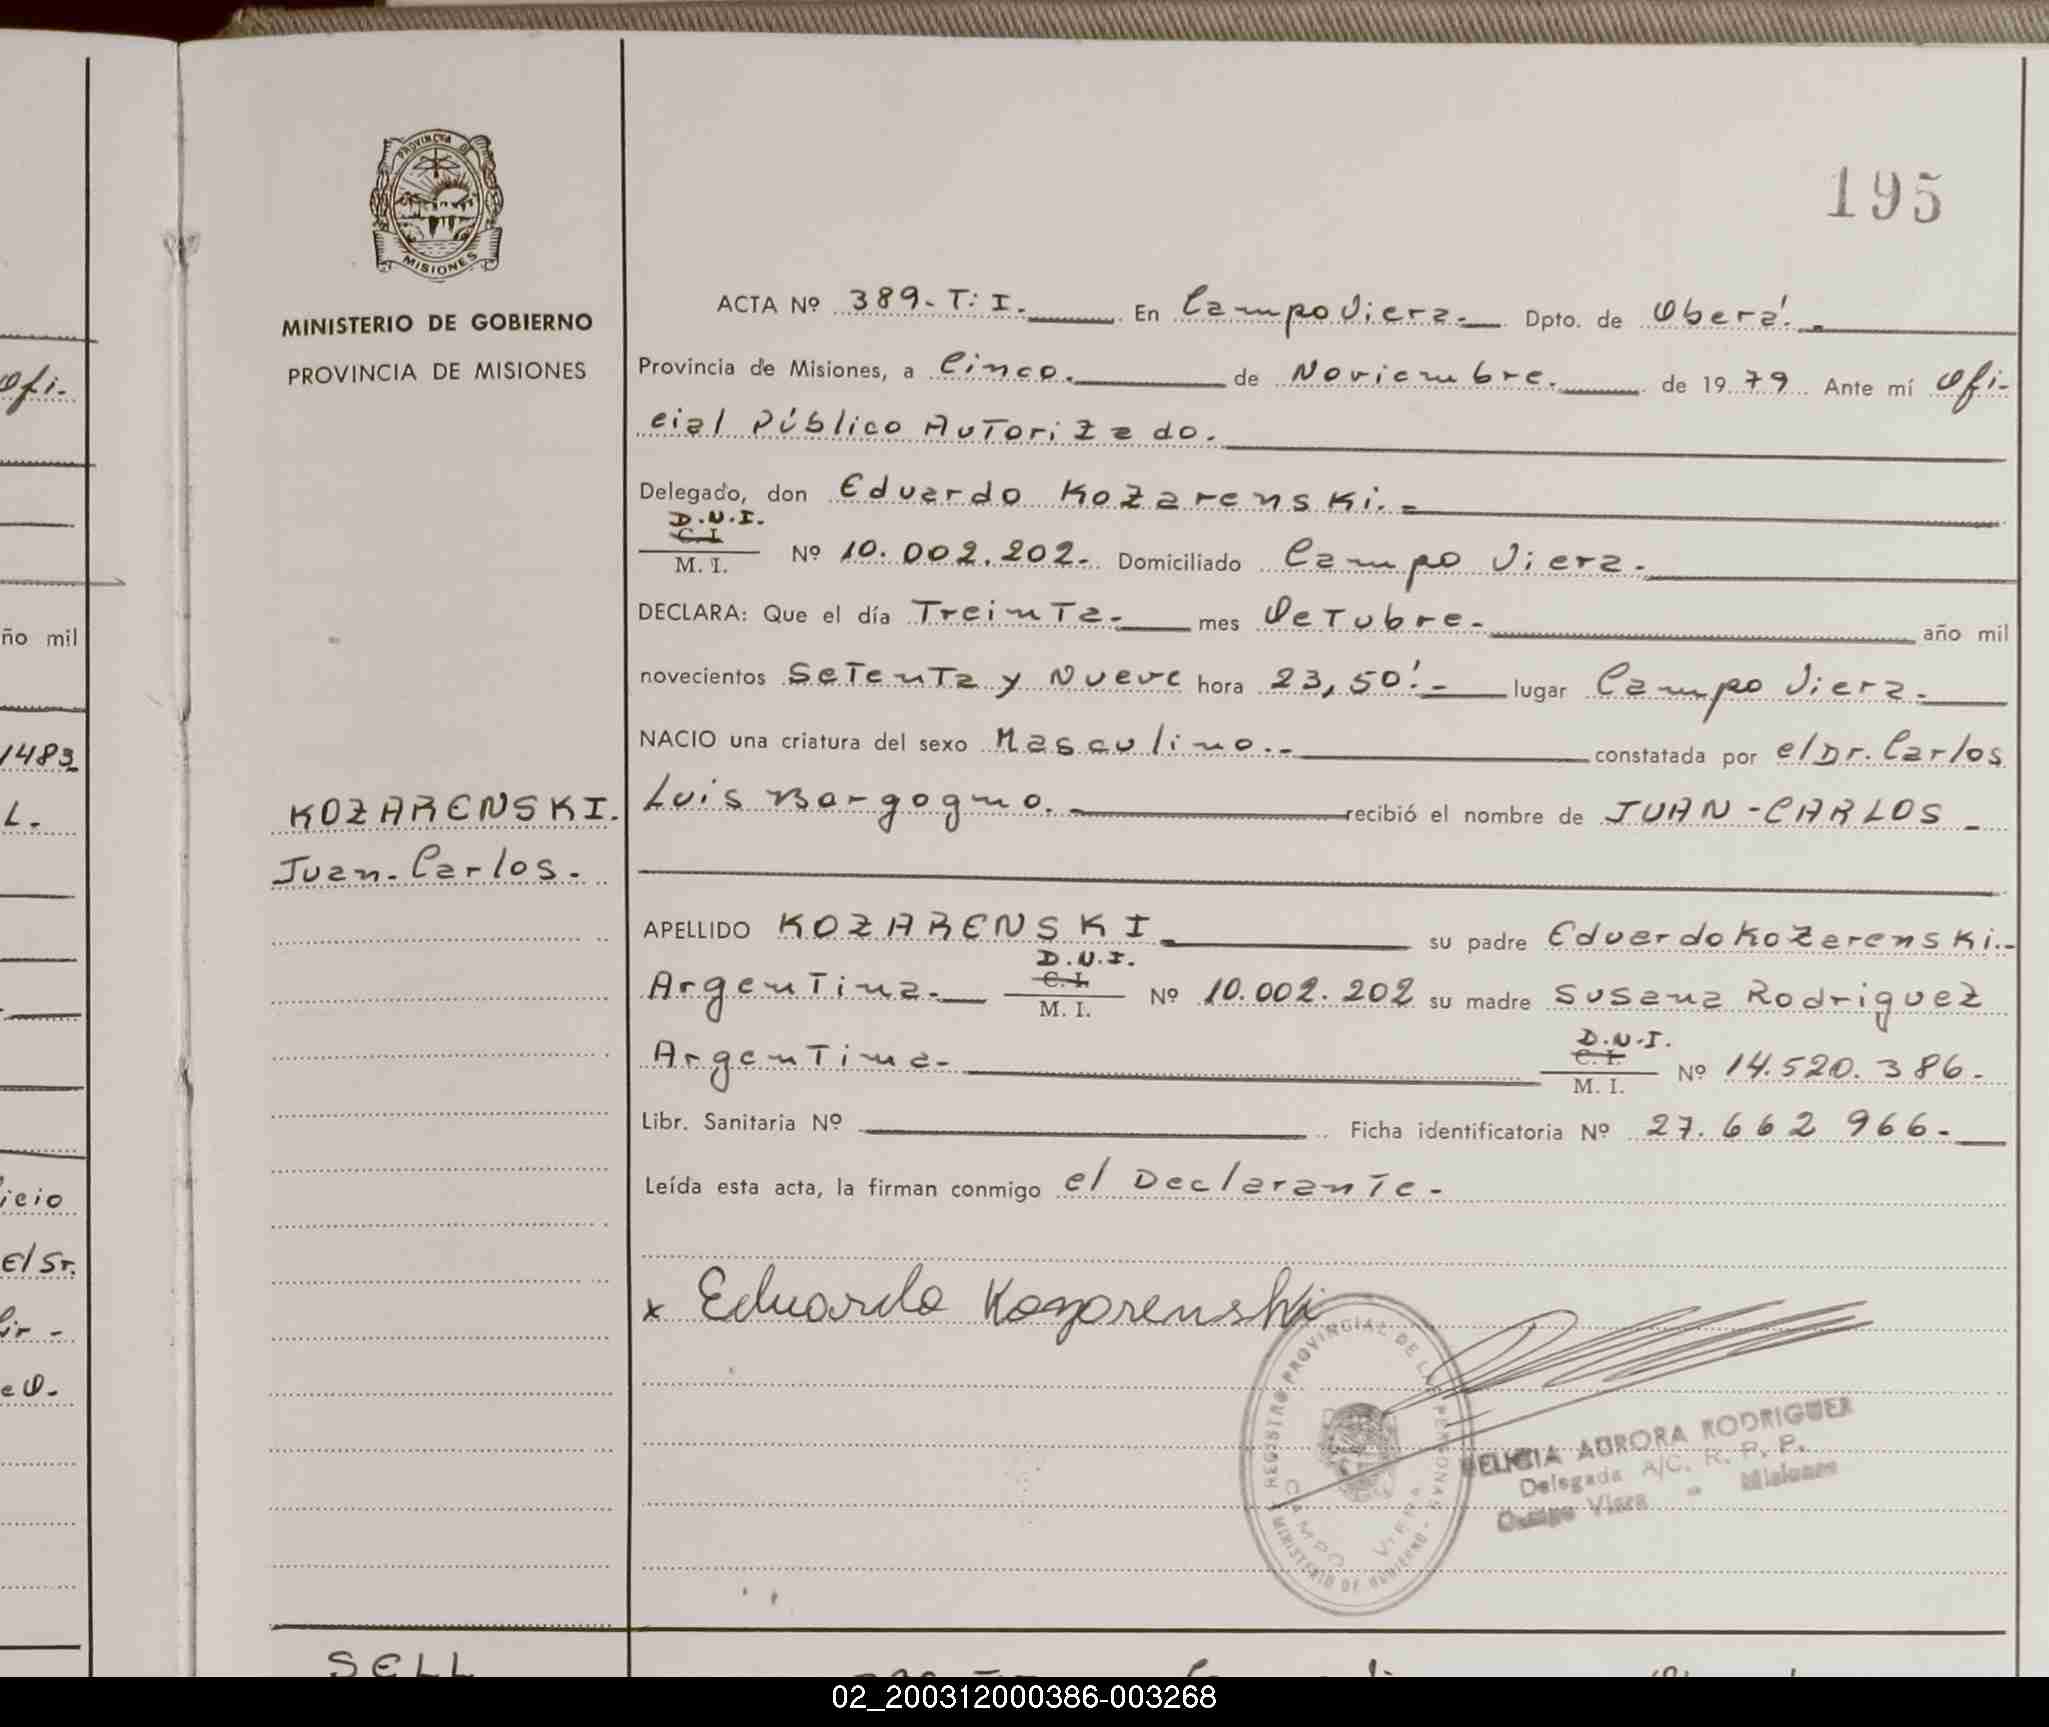 195
PROVINCIA DE
MISIONES
MINISTERIO DE GOBIERNO
PROVINCIA DE MISIONES
KOZARENSKI.
Juan-Carlos.
ACTA Nº 389-T:I. En Campo Viera. Dpto. de Oberá.
Provincia de Misiones, a Cinco. de Noviembre. de 1979 Ante mí Ofi-
cial Público Autorizado.
Delegado, don Eduardo Kozarenski.
D.N.I.
C. I.
M. I. Nº 10.002.202. Domiciliado Campo Viera.
DECLARA: Que el día Treinta. mes Octubre. año mil
novecientos Setenta y Nueve hora 23,50'. lugar Campo Viera.
NACIO una criatura del sexo Masculino. constatada por el Dr. Carlos
Luis Borgogno. recibió el nombre de JUAN-CARLOS
APELLIDO KOZARENSKI su padre Eduardo Kozerenski.
D.N.I.
C. I.
Argentina. M. I. Nº 10.002.202 su madre Susana Rodriguez
D.N.I.
C. I.
Argentina. M. I. Nº 14.520.386.
Libr. Sanitaria Nº Ficha identificatoria Nº 27.662 966.
Leída esta acta, la firman conmigo el Declarante.
x Eduardo Kozorenski
REGISTRO PROVINCIAL DE LAS PERSONAS
CAMPO VIERA
MINISTERIO DE GOBIERNO
AURORA RODRIGUEZ
Delegada A/C. R. P. P.
Campo Viera - Misiones
ofi.
ño mil
1483
L.
icio
El Sr.
SELL
02_200312000386-003268